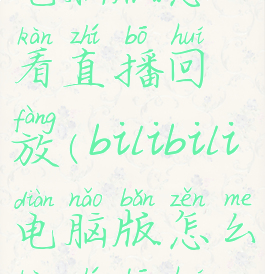 kàn zhí bō huí
看直播回
fàng
放(bilibili
diàn nǎo bǎn zěn me
电脑版怎么